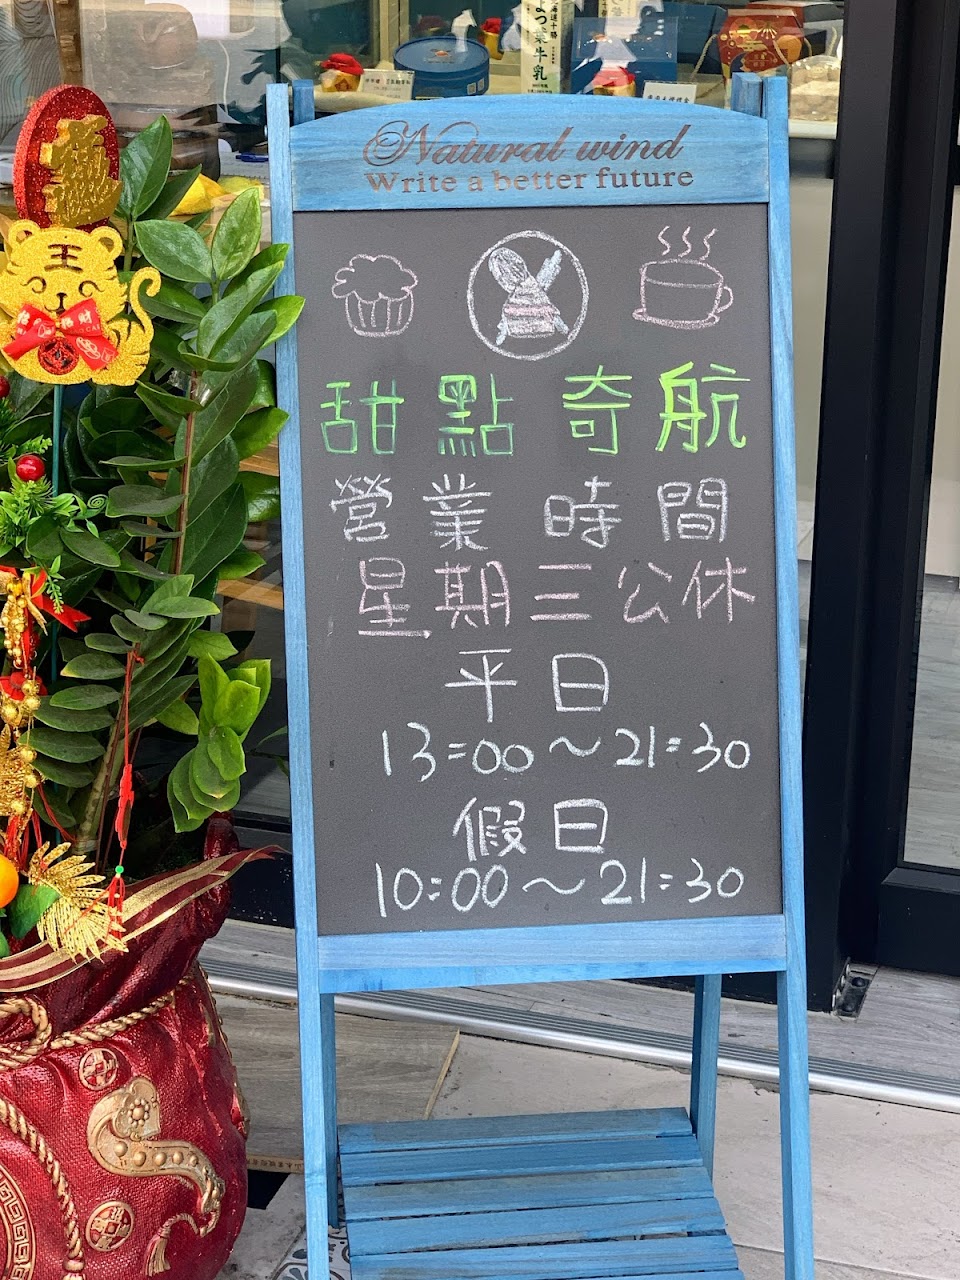 北海道十勝
よつ葉牛乳
Natural wind
Write a better future
王
招財
甜點奇航
營業時間
星期三公休
平日
13:00~21:30
假日
10:00~21:30